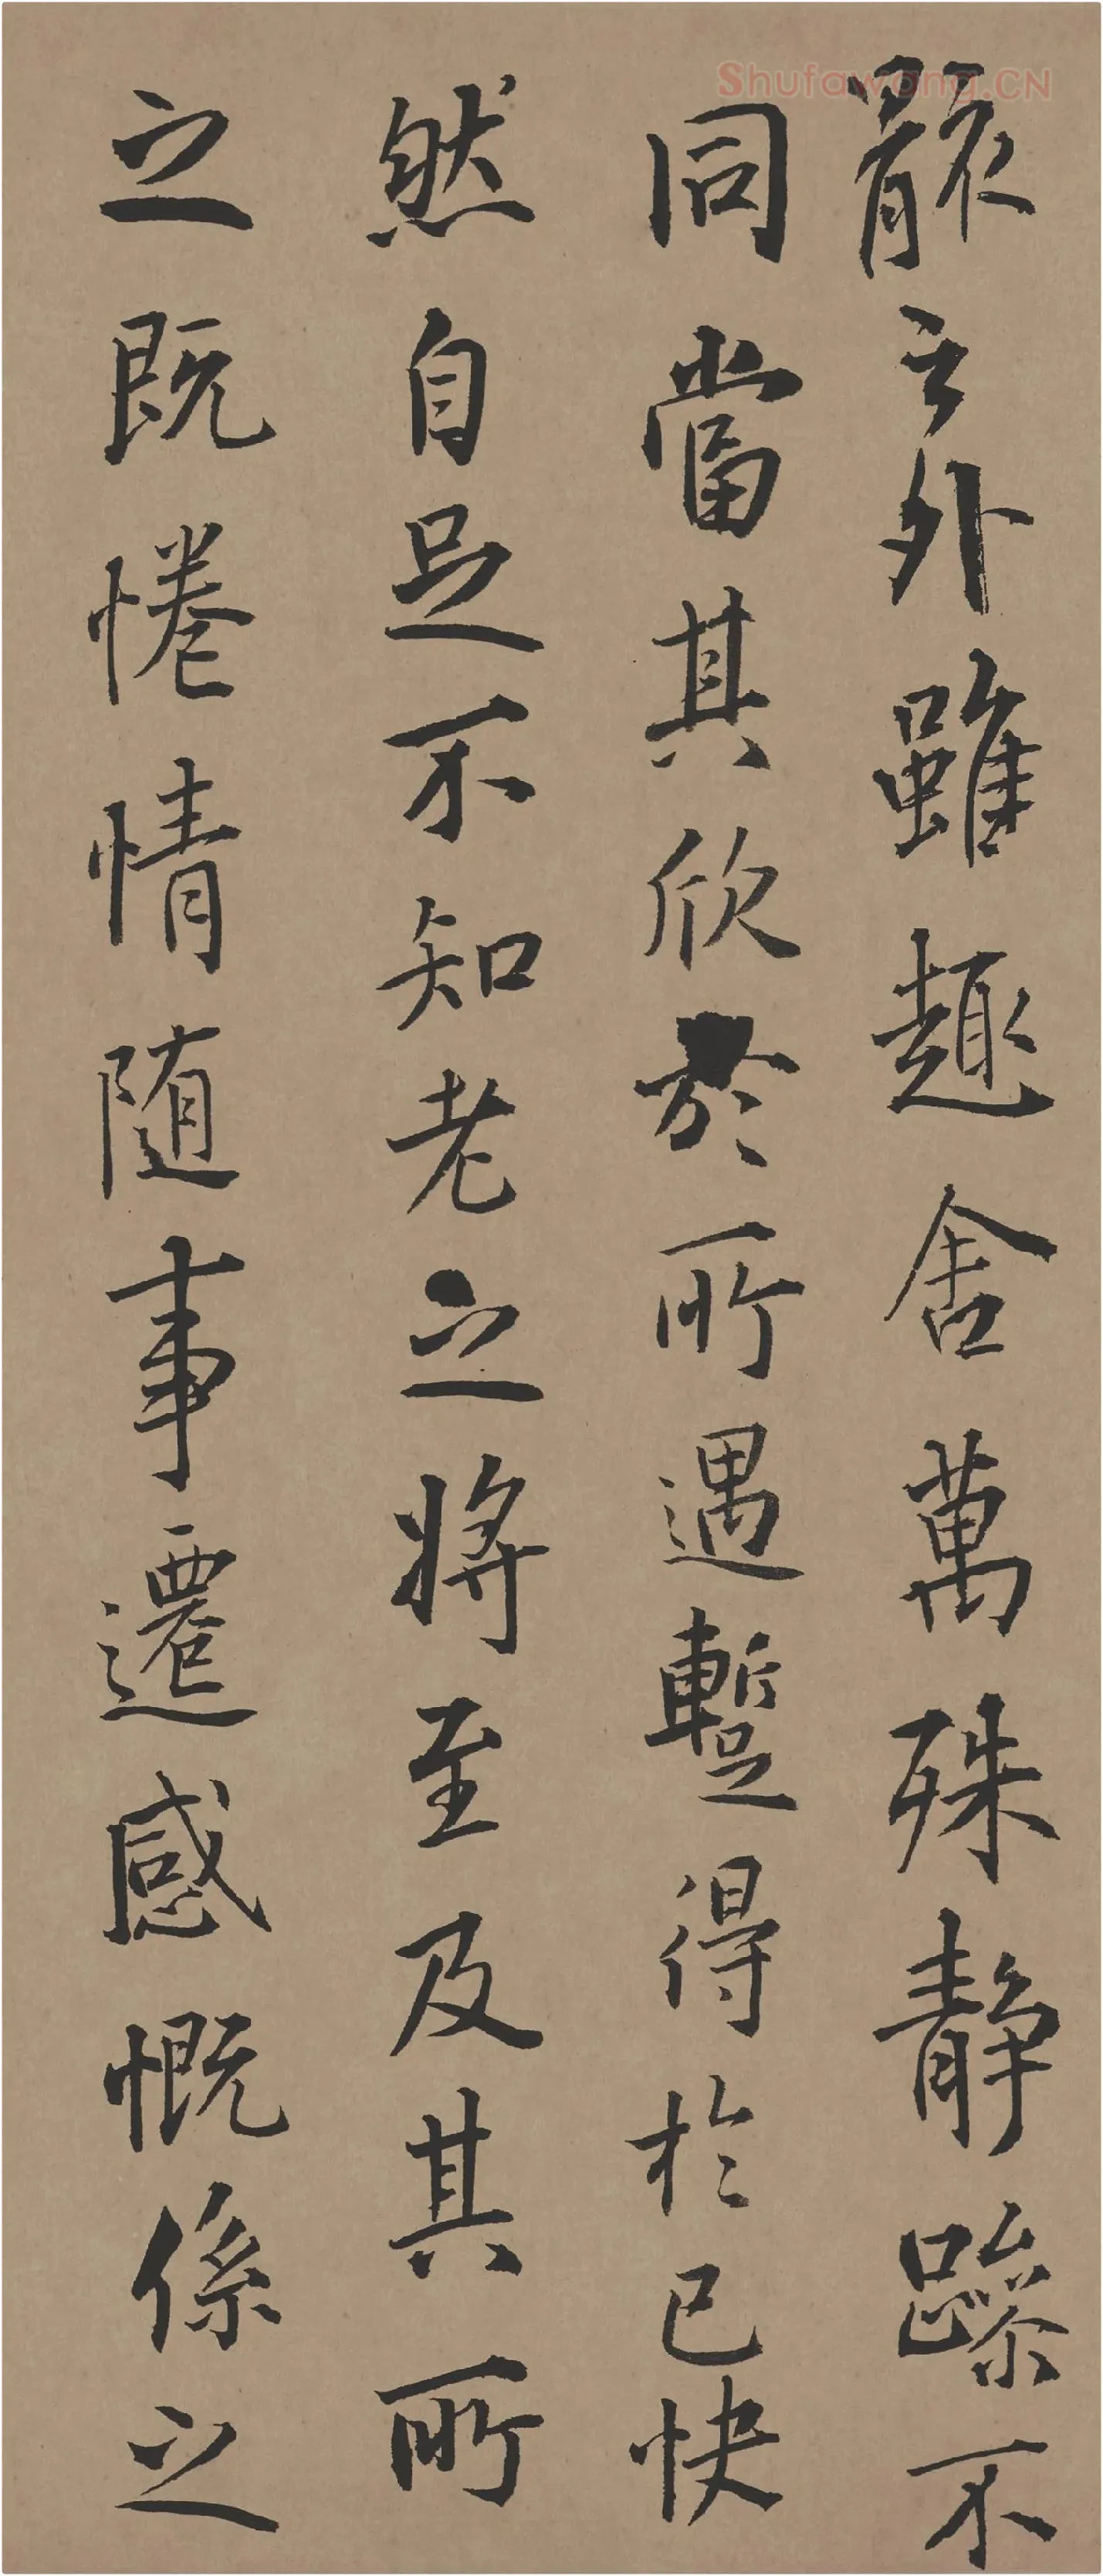 Shufawang.CN
骸之外雖趣舍萬殊靜躁不
同當其欣於所遇蹔得於己快
然自足不知老之將至及其所
之既惓情随事遷感慨係之